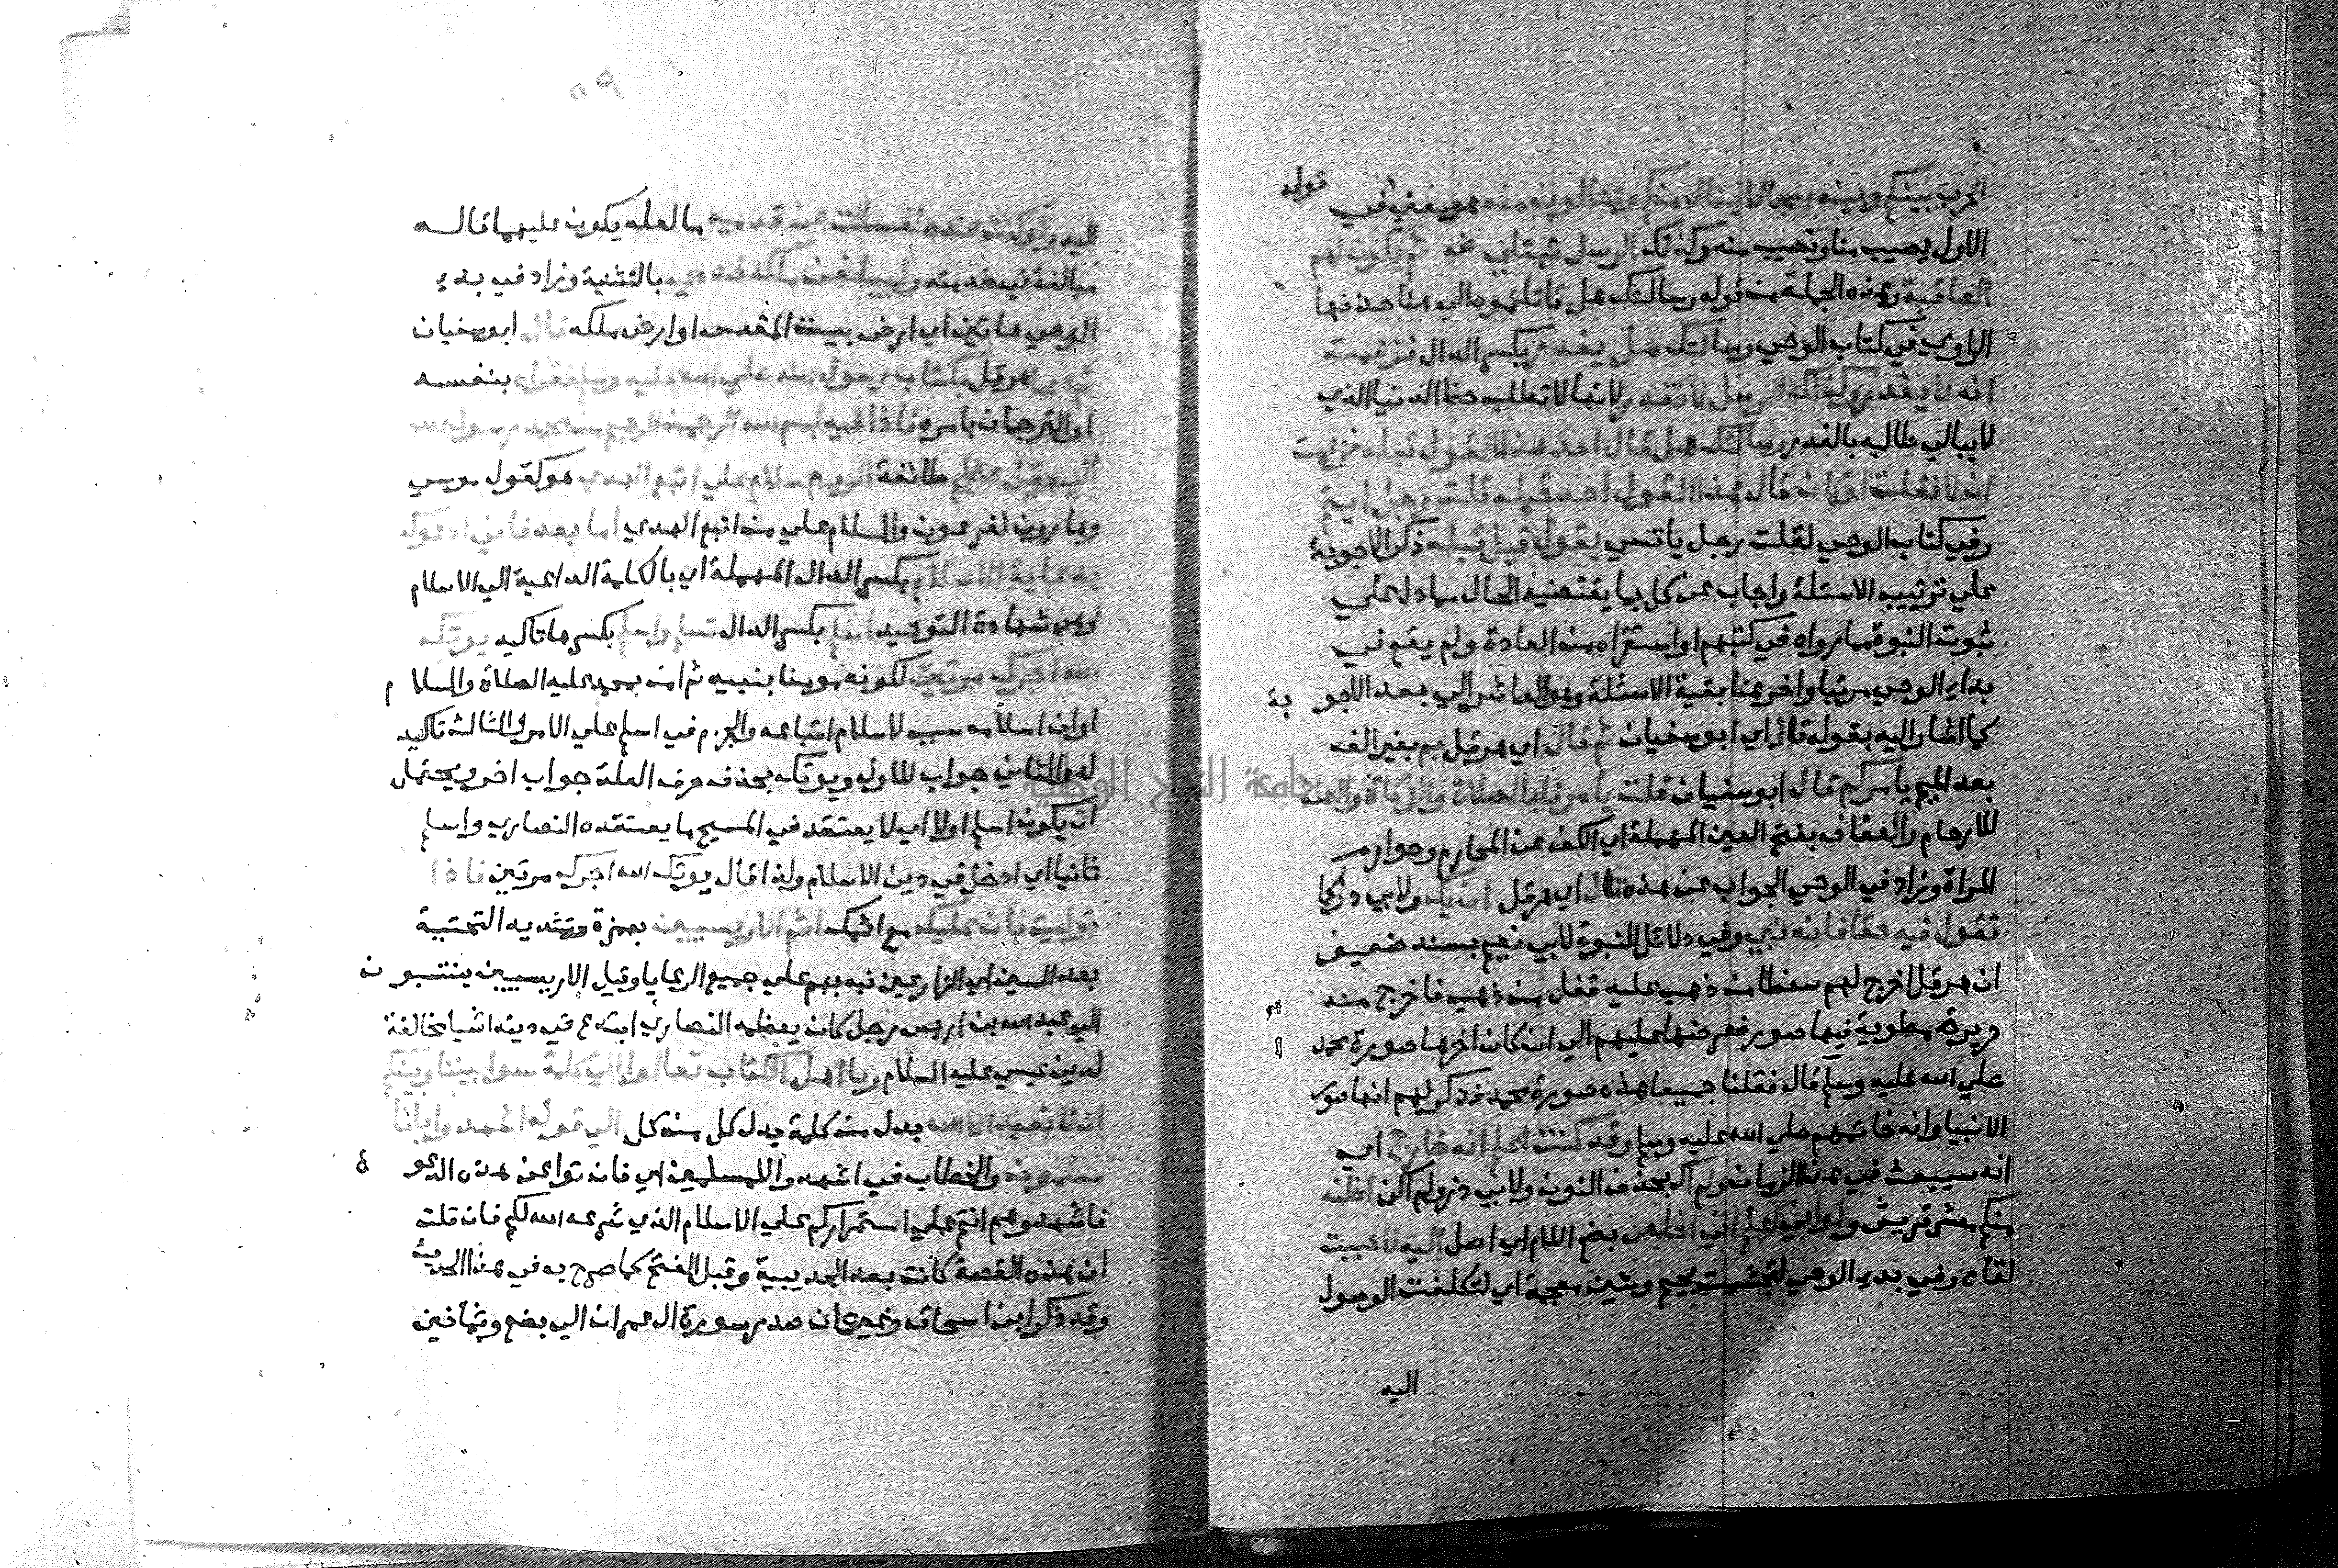 الحرب بينكم وبينه سجالا ينال منكم وتنالون منه هو معني قوله في
الاول يصيب منا ونصيب منه وكذلك الرسل تبتلي ثم يكون لهم
العاقبة وهذه الجملة من قوله وسالتك هل قاتلتموه الي هنا حذفها
الراوي في كتاب الوحي وسالتك هل يغدر بكسر الدال فزعمت
انه لا يغدر وكذلك الرسل لا تغدر لانها لا تطلب حظ الدنيا الذي
لا يبالي طالبه بالغدر وسالتك هل قال احد هذا القول قبله فزعمت
ان لا فقلت لو كان قال هذا القول احد قبله قلت رجل ايتم
وفي كتاب الوحي لقلت رجل ياتسي بقول قيل قبله ذكر الاجوبة
علي ترتيب الاسئلة واجاب عن كل بما يقتضيه الحال مما دل علي
ثبوت النبوة مما رواه في كتبهم او استقراه من العادة ولم يقع في
بداء الوحي مرتبا واخر هنا بقية الاسئلة وهو العاشر الي بعد الاجوبة
كما اشار اليه بقوله قال اي ابو سفيان ثم قال اي هرقل بم بغير الف
بعد الميم يامركم قال ابو سفيان قلت يامرنا بالصلاة والزكاة والصلة
للارحام والعفاف بفتح العين المهملة اي الكف عن المحارم وخوارم
المراة وزاد في الوحي الجواب عن هذه قال اي هرقل ان يك ولابي ذر كما
تقول فيه حقا فانه نبي وفي دلائل النبوة لابي نعيم بسند ضعيف
ان هرقل اخرج لهم سفطا من ذهب عليه قفل من ذهب فاخرج منه
حريرة مطوية فيها صور فعرضها عليهم الي ان كان اخرها صورة محمد
صلي الله عليه وسلم قال فقلنا جميعا هذه صورة محمد فذكر لهم انها صور
الانبيا وانه خاتمهم صلي الله عليه وسلم وقد كنت اعلم انه خارج اي
انه سيبعث في هذا الزمان ولم اك بحذف النون ولابي ذر ولم اكن اظنه
منكم معشر قريش ولو اني اعلم اني اخلص بضم اللام اي اصل اليه لاحببت
لقاه وفي بدء الوحي لتجشمت بجيم وشين معجمة اي لتكلفت الوصول
اليه
٩٥
اليه ولو كنت عنده لغسلت عن قدميه ما لعله يكون عليهما قاله
مبالغة في خدمته وليبلغن ملكه قدمي بالتثنية وزاد في بدء
الوحي هاتين اي ارض بيت المقدس او ارض ملكه قال ابو سفيان
ثم دعا هرقل بكتاب رسول الله صلي الله عليه وسلم فقراه بنفسه
او الترجمان بامره فاذا فيه بسم الله الرحمن الرحيم من محمد رسول الله
الي هرقل عظيم طائفة الروم سلام علي من اتبع الهدي هو كقول موسي
وهارون لفرعون والسلام علي من اتبع الهدي اما بعد فاني ادعوك
بدعاية الاسلام بكسر الدال المهملة اي بالكلمة الداعية الي الاسلام
وهي شهادة التوحيد اسلم بكسر الدال تسلم واسلم بكسرها تاكيد يوتك
الله اجرك مرتين لكونه مومنا بنبيه ثم امن بمحمد عليه الصلاة والسلام
او ان اسلامه سبب لاسلام اتباعه والجزم في اسلم علي الامر والثالث تاكيد
له والثاني جواب للاول ويوتك بحذف حرف العلة جواب اخر ويحتمل
ان يكون اسلم اولا اي لا يعتقد في المسيح ما يعتقده النصاري واسلم
ثانيا اي ادخل في دين الاسلام ولذا قال يوتك الله اجرك مرتين فاذا
توليت فان عليك مع اثمك اثم الاريسيين بهمزة وتشديد التحتية
بعد السين اي الزارعين نبه بهم علي جميع الرعايا وقيل الاريسيين ينتسبون
الي عبد الله بن اريس رجل كان يعظمه النصاري ابتدع في دينه اشيا مخالفة
لدين عيسي عليه السلام ويا اهل الكتاب تعالوا الي كلمة سوا بيننا وبينكم
ان لا نعبد الا الله بدل من كلمة بدل كل من كل الي قوله اشهدوا بانا
مسلمون والخطاب في اشهدوا للمسلمين اي فان تولوا عن هذه الدعوة
فاشهدوهم انتم علي استمراركم علي الاسلام الذي شرعه الله لكم فان قلت
ان هذه القصة كانت بعد الحديبية وقبل الفتح كما صرح به في هذا الحديث
وقد ذكر ابن اسحاق وغيره ان صدر سورة ال عمران الي بضع وثمانين
جامعة النجاح الوطنية